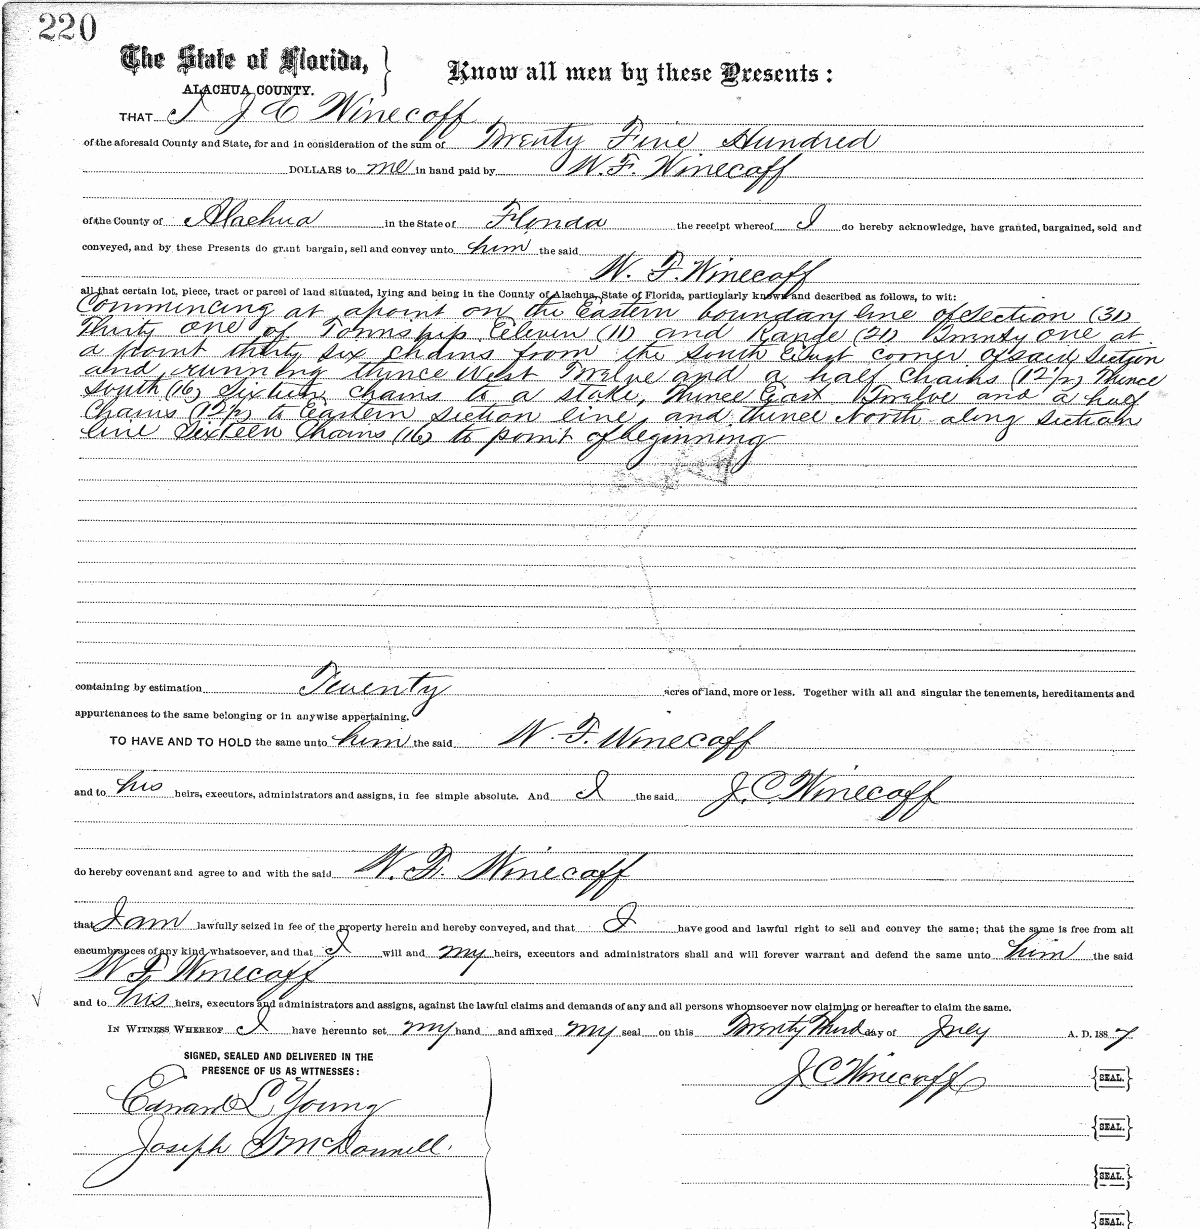 220
The State of Florida, }
ALACHUA COUNTY.
Know all men by these Presents:
THAT I J C Winecoff
of the aforesaid County and State, for and in consideration of the sum of Twenty Five Hundred
DOLLARS to me in hand paid by W. F. Winecoff
of the County of Alachua in the State of Florida the receipt whereof I do hereby acknowledge, have granted, bargained, sold and
conveyed, and by these Presents do grant bargain, sell and convey unto him the said
W. F. Winecoff
all that certain lot, piece, tract or parcel of land situated, lying and being in the County of Alachua, State of Florida, particularly known and described as follows, to wit:
Commencing at a point on the Eastern boundary line of Section (31)
Thirty one of Township Eleven (11) and Range (21) Twenty one at
a point thirty six chains from the South East corner of said Section
and running thence West Twelve and a half Chains (12 1/2) Thence
South (16) Sixteen chains to a stake, thence East Twelve and a half
Chains (12 1/2) to Eastern Section line, and thence North along Section
line Sixteen Chains (16) to point of beginning
containing by estimation Twenty acres of land, more or less. Together with all and singular the tenements, hereditaments and
appurtenances to the same belonging or in anywise appertaining.
TO HAVE AND TO HOLD the same unto him the said W. F. Winecoff
and to his heirs, executors, administrators and assigns, in fee simple absolute. And I the said J. C. Winecoff
do hereby covenant and agree to and with the said W. F. Winecoff
that I am lawfully seized in fee of the property herein and hereby conveyed, and that I have good and lawful right to sell and convey the same; that the same is free from all
encumbrances of any kind whatsoever, and that I will and my heirs, executors and administrators shall and will forever warrant and defend the same unto him the said
W F Winecoff
and to his heirs, executors and administrators and assigns, against the lawful claims and demands of any and all persons whomsoever now claiming or hereafter to claim the same.
IN WITNESS WHEREOF I have hereunto set my hand and affixed my seal on this Twenty Third day of July A. D. 1887
SIGNED, SEALED AND DELIVERED IN THE
PRESENCE OF US AS WITNESSES:
J C Winecoff {SEAL.}
Edward L Young
{SEAL.}
Joseph McDonnell.
{SEAL.}
{SEAL.}